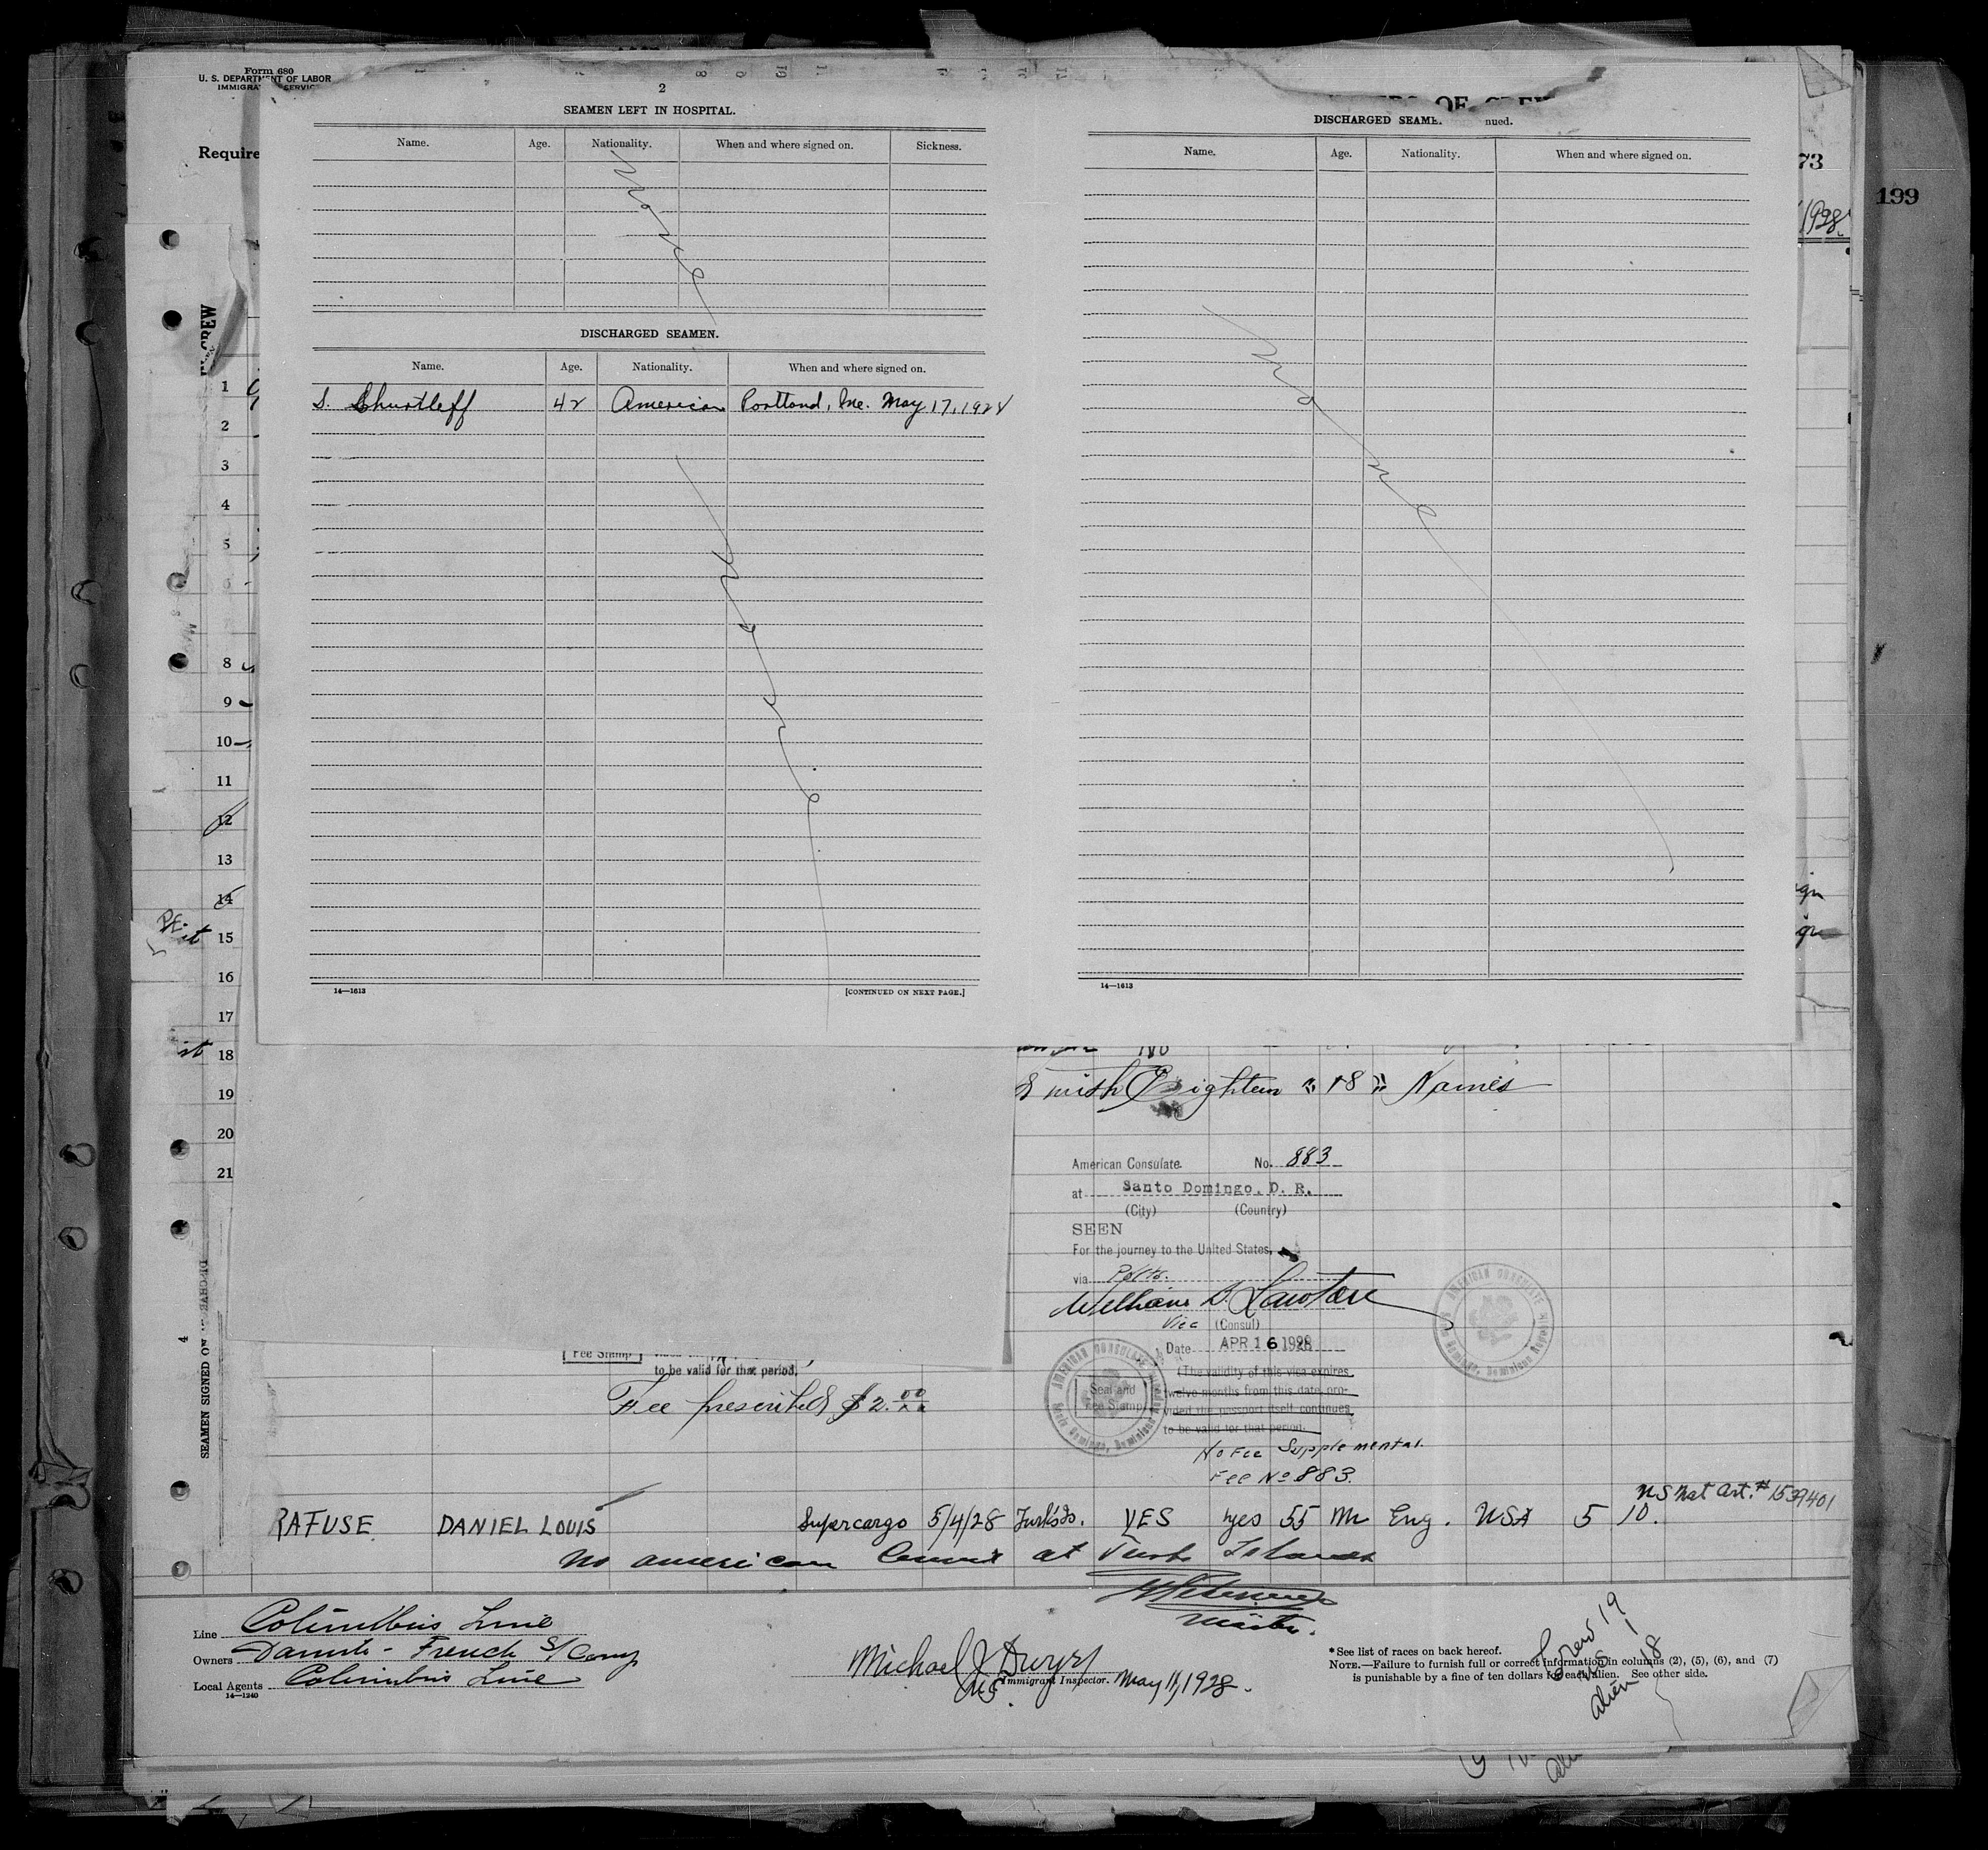 Form 680
U. S. DEPARTMENT OF LABOR
Require
2
SEAMEN LEFT IN HOSPITAL.
Name. Age. Nationality. When and where signed on. Sickness.
None
DISCHARGED SEAMEN.
Name. Age. Nationality. When and where signed on.
S. Churtleff 42 American Portland, Me. May 17, 1928
None
14—1613 [CONTINUED ON NEXT PAGE.]
OF CREW
DISCHARGED SEAME nued.
Name. Age. Nationality. When and where signed on.
None
14—1613
73
1928
199
1
2
3
4
5
8
9
10
11
12
13
14
15
16
17
18
19
20
21
4
SEAMEN SIGNED ON
No
Eighteen "18" Names
American Consulate No. 883
at Santo Domingo, D. R.
(City) (Country)
SEEN
For the journey to the United States,
via
William
Vice (Consul)
Date APR 16 1928
(The validity of this visa expires
twelve months from this date, pro-
vided the passport itself continues
to be valid for that period.
Seal and
Fee Stamp
AMERICAN CONSULATE
Santo Domingo, Dominican Republic
No Fee Supplemental.
Fee No 883.
Fee Stamp
to be valid for that period.
Fee prescribed $2.00
U S Nat Crt. # 1539401
RAFUSE DANIEL LOUIS Supercargo 5/4/28 Turks Is. YES yes 55 M Eng. USA 5 10.
No american Consul at Turks Islands
Master.
Line Columbus Line
Owners French S/ Comp
Local Agents Columbus Line
14—1240
Michael J Dwyer
Immigrant Inspector. May 11, 1928.
* See list of races on back hereof.
NOTE.—Failure to furnish full or correct information in columns (2), (5), (6), and (7)
is punishable by a fine of ten dollars for each alien. See other side.
Crew 19
US 1
Alien 18